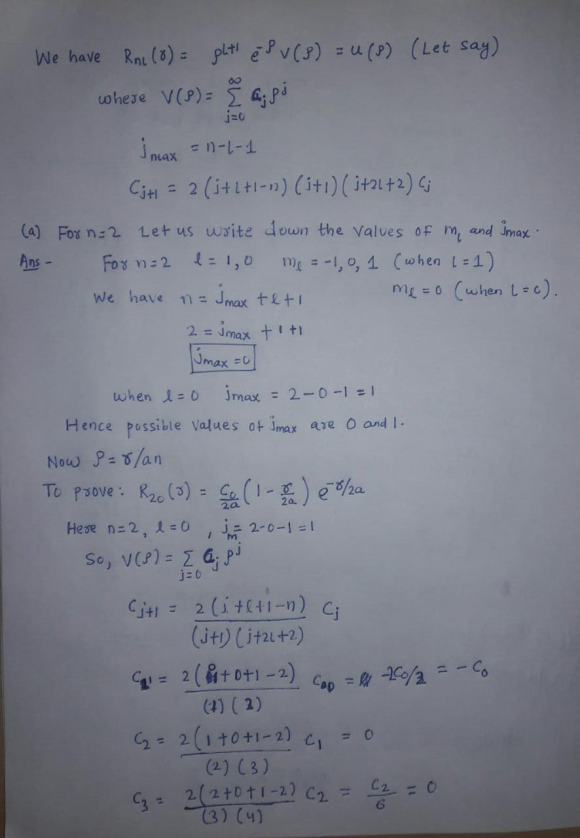 We have R_nl(r) = ρ^(l+1) e^-ρ V(ρ) = u(ρ) (Let say)
where V(ρ) = ∞ Σ j=0 C_j ρ^j
j_max = n-l-1
C_j+1 = 2(j+l+1-n)(j+1)(j+2l+2) C_j
(a) For n=2 Let us write down the values of m_l and j_max.
Ans - For n=2 l=1,0 m_l = -1,0,1 (when l=1)
m_l = 0 (when l=0).
We have n = j_max + l + 1
2 = j_max + 1 + 1
j_max = 0
when l=0 j_max = 2-0-1 = 1
Hence possible values of j_max are 0 and 1.
Now ρ = r/an
To prove: R_20(r) = C_0/2a (1 - r/2a) e^-r/2a
Here n=2, l=0, j_m = 2-0-1 = 1
So, V(ρ) = Σ j=0 C_j ρ^j
C_j+1 = 2(j+l+1-n) / (j+1)(j+2l+2) C_j
C_1 = 2(0+0+1-2) / (1)(2) C_0 = -2C_0/2 = -C_0
C_2 = 2(1+0+1-2) / (2)(3) C_1 = 0
C_3 = 2(2+0+1-2) / (3)(4) C_2 = C_2/6 = 0